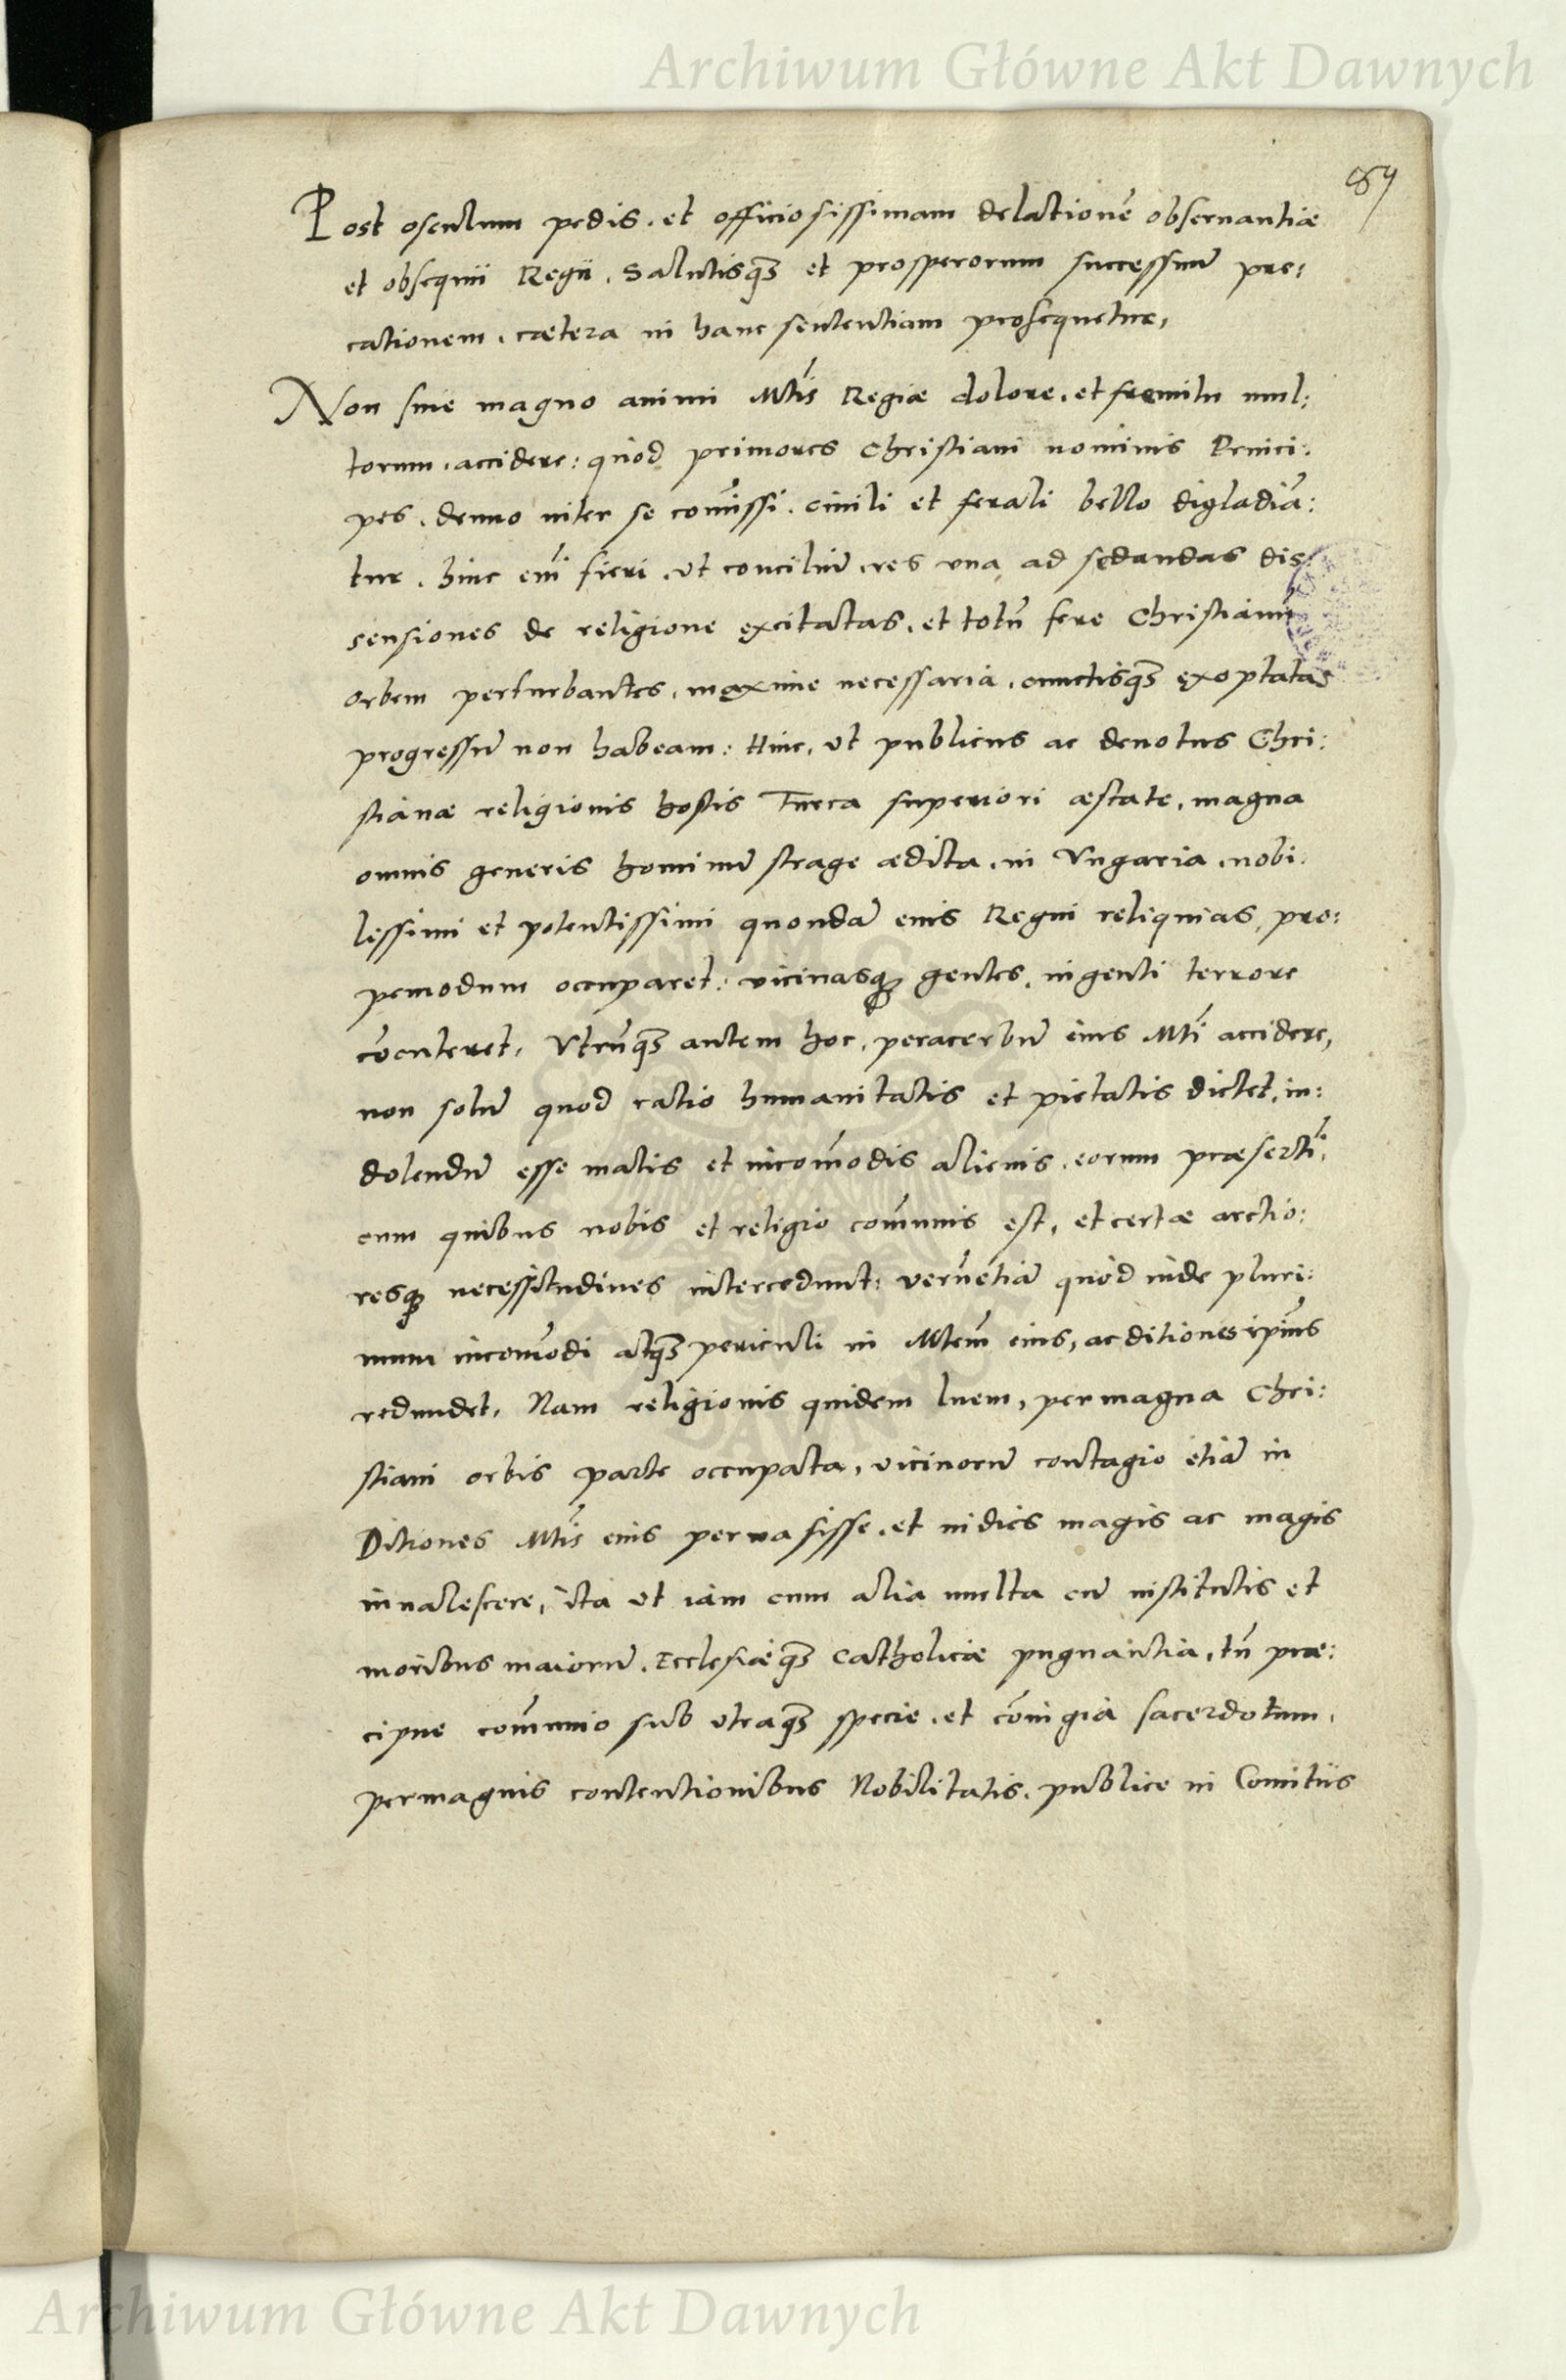 Archiwum Główne Akt Dawnych
89
Post osculum pedis. et officiosissimam delationē obseruantiæ
et obsequii Regii. Salutisqꝫ et prosperorum successuū pre:
cationem. cætera in hanc sententiam prosequetur,
Non sine magno animi Mtis Regiæ dolore. et fremitu mul:
torum. accidere: quòd primores Christiani nominis Princi:
pes. denuo inter se com̄issi. ciuili et ferali bello digladiā:
tur. hinc eīn fieri. vt conciliū. res vna ad sedandas dis:
sensiones de religione excitatas. et totū fere Christianū
orbem perturbantes. maxime necessaria. cunctisqꝫ exoptata
progressū non habeam: Hinc, vt publicus ac deuotus Chri:
stianæ religionis hostis Turca superiori æstate. magna
omnis generis hominū strage ædita. in Vngaria. nobi:
lissimi et potentissimi quondā eius Regni reliquias, pro:
pemodum occuparet: vicinasqꝫ gentes. ingenti terrore
cōcuteret, Vtrūqꝫ autem hoc. peracerbū eius Mti accidere,
non solū quod ratio humanitatis et pietatis dictet. in:
dolendū esse malis et incom̄odis alienis. eorum præsertī,
cum quibus nobis et religio com̄unis est, et certæ arctio:
resqꝫ necessitudines intercedunt: verūetiā quòd inde pluri:
mum incom̄odi atqꝫ periculi in Mtem eius, ac ditiones ipīus
redundet, Nam religionis quidem luem, permagna Chri:
stiani orbis parte occupata, vicinorū contagio etiā in
Ditiones Mtis eius peruasisse. et indies magis ac magis
inualescere, ita vt iam cum alia multa cū institutis et
moribus maiorū. Ecclesiæqꝫ Catholicæ pugnantia, tū præ:
cipue com̄unio sub vtraqꝫ specie. et cōiugia sacerdotum.
permagnis contentionibus Nobilitatis. publice in Comitiis
Archiwum Główne Akt Dawnych